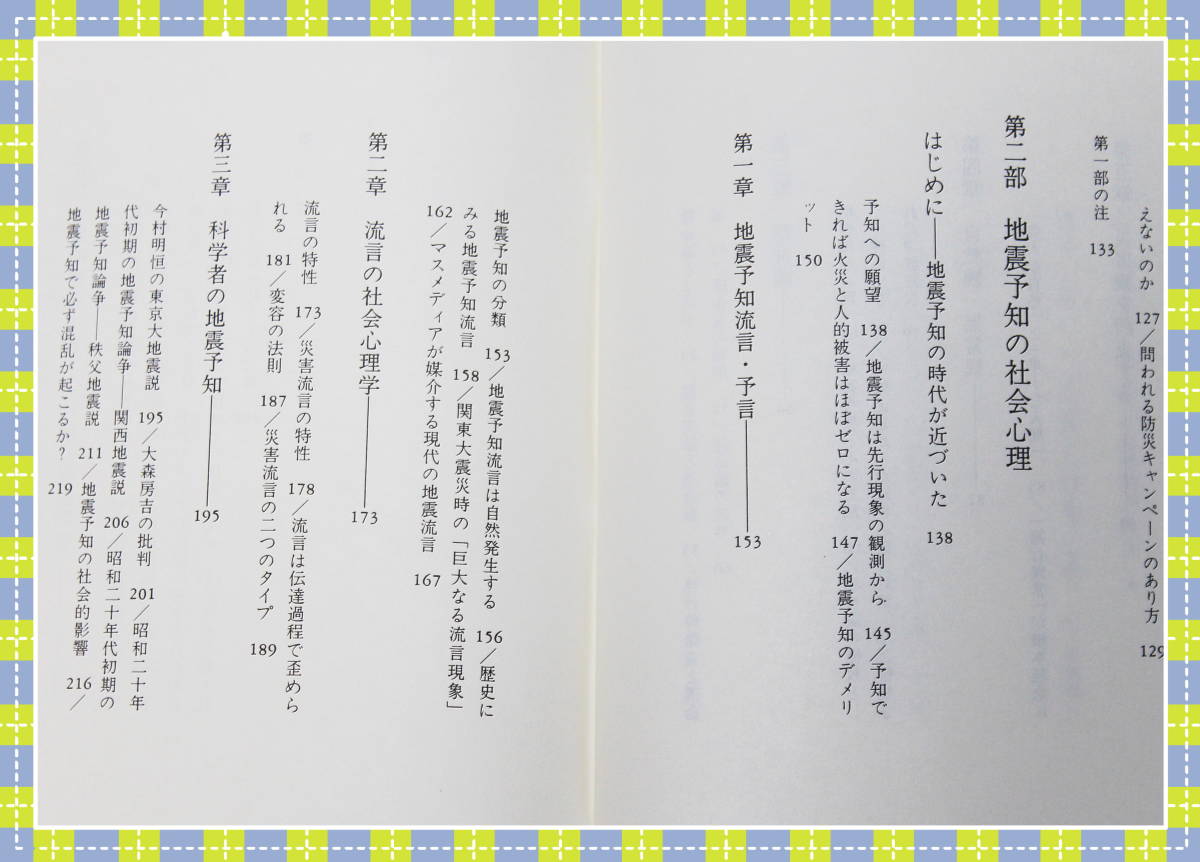 えないのか　127／問われる防災キャンペーンのあり方　129
第一部の注　133
第二部　地震予知の社会心理
はじめに―地震予知の時代が近づいた　138
予知への願望　138／地震予知は先行現象の観測から　145／予知で
きれば火災と人的被害はほぼゼロになる　147／地震予知のデメリ
ット　150
第一章　地震予知流言・予言――――153
地震予知の分類　153／地震予知流言は自然発生する　156／歴史に
みる地震予知流言　158／関東大震災時の「巨大なる流言現象」
162／マスメディアが媒介する現代の地震流言　167
第二章　流言の社会心理学――――173
流言の特性　173／災害流言の特性　178／流言は伝達過程で歪めら
れる　181／変容の法則　187／災害流言の二つのタイプ　189
第三章　科学者の地震予知――――195
今村明恒の東京大地震説　195／大森房吉の批判　201／昭和二十年
代初期の地震予知論争――関西地震説　206／昭和二十年代初期の
地震予知論争――秩父地震説　211／地震予知の社会的影響　216／
地震予知で必ず混乱が起こるか？　219